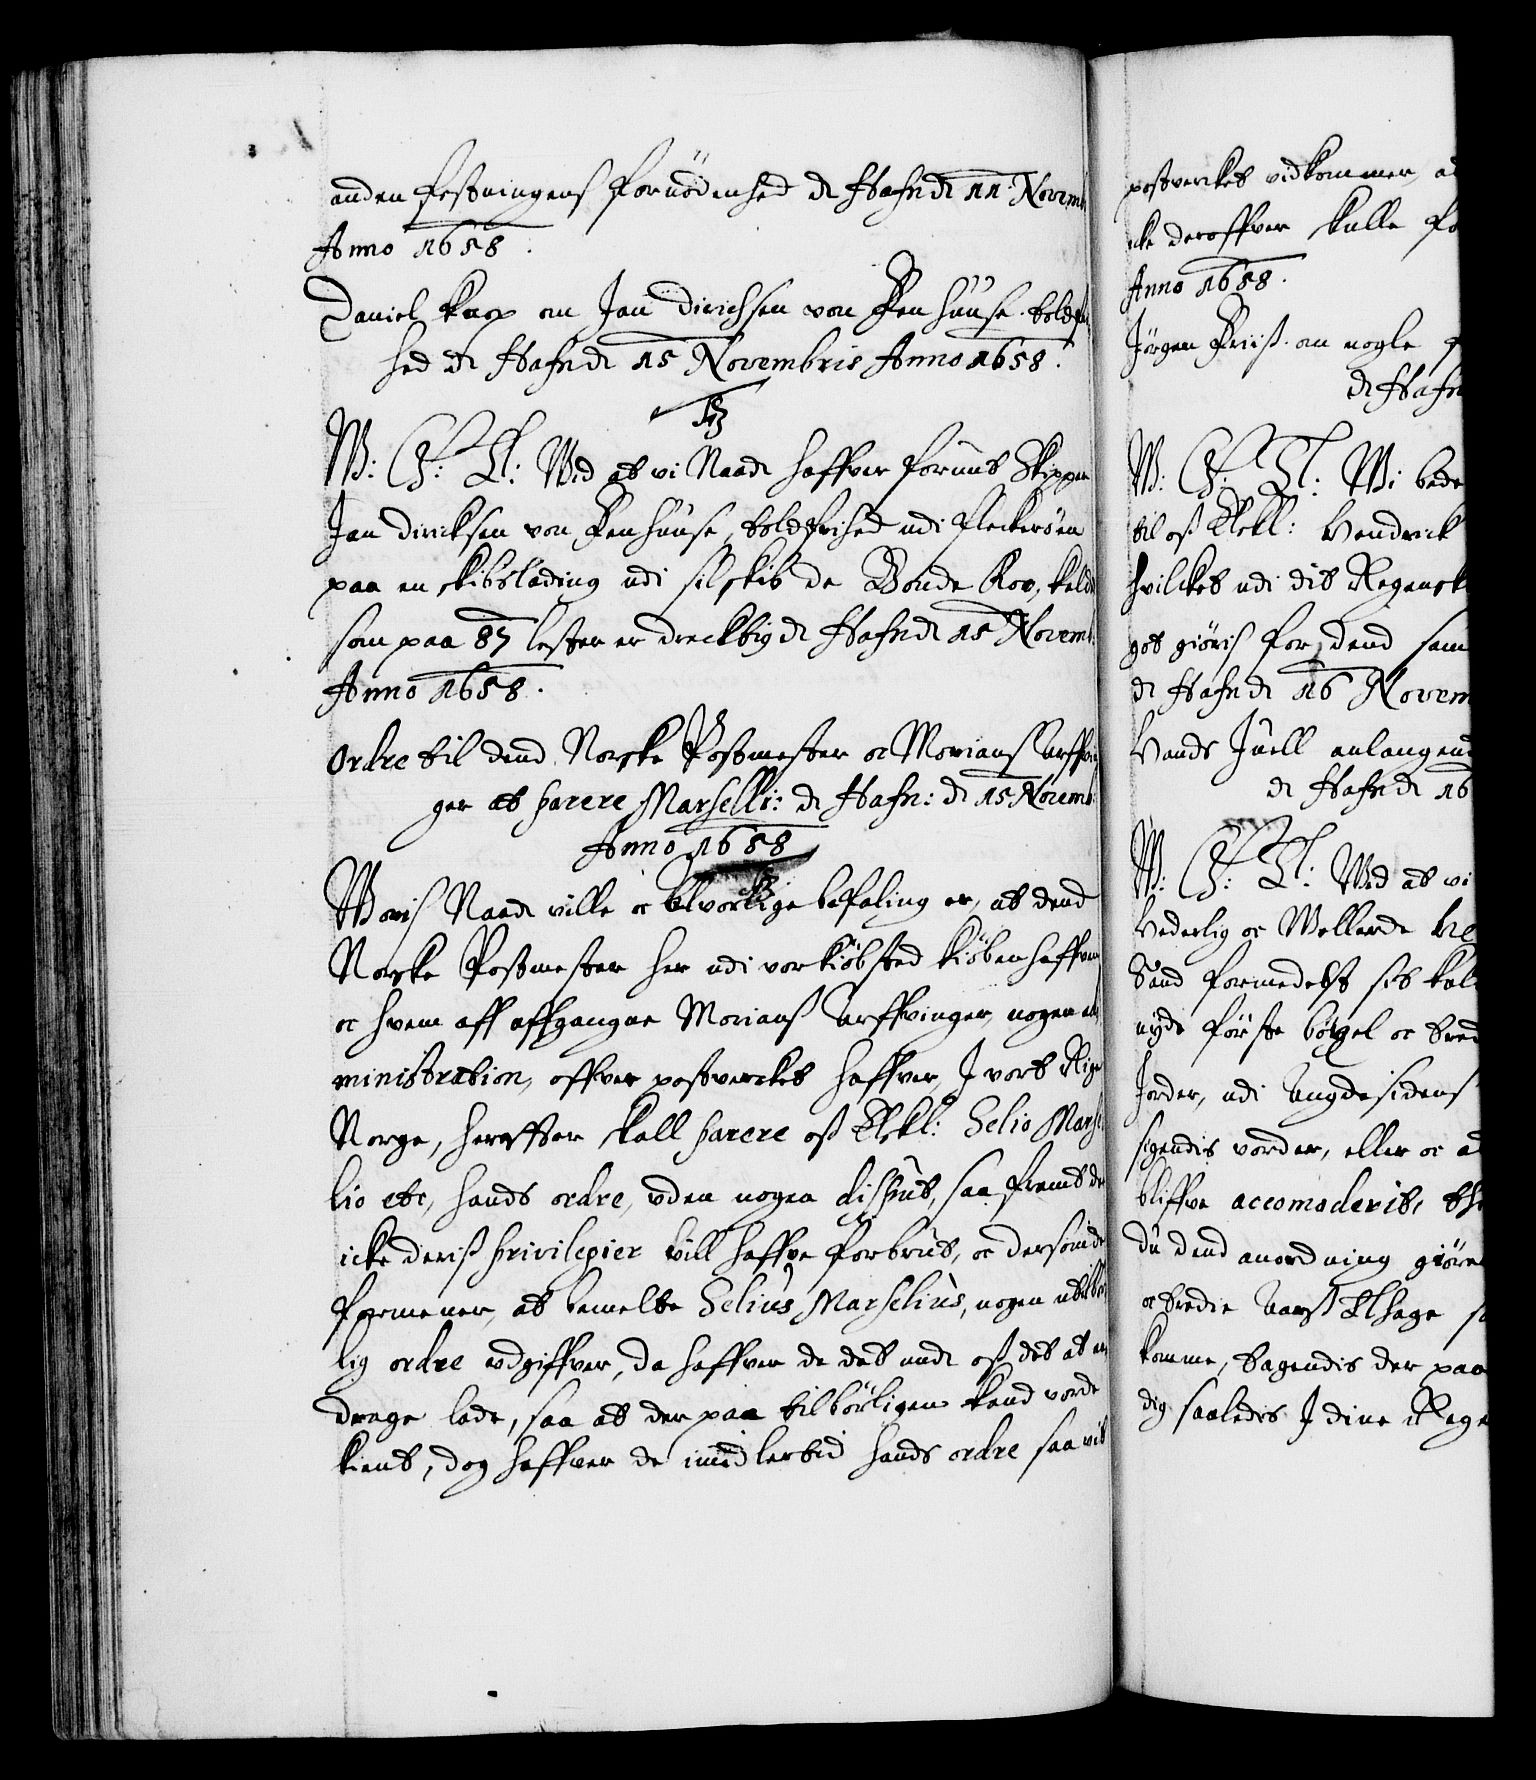 anden festningens fornödenhed de Hafn de 11 Novemb
Anno 1658.
Daniel Knop om Jan Dirichsen von Renhuuse toldfri
hed de Hafn de 15 Novembris Anno 1658.
W: G: T: Wid at vi Naade haffver forunt Skipper
Jan Diricksen von Renhuuse, toldfrihed udi Fleckeröen
paa en skibslading udi sit skib de Bonde Kov, kaldt
som paa 87 lester er drecktig de Hafn de 15 Novemb:
Anno 1658.
Ordre til dend Norske Postmester oc Morians Arffvin
ger at parere Marselli: de Hafn: de 15 Novemb:
Anno 1658
Woris Naade ville oc alvorlige befaling er, at dend
Norske Postmester her udi vor kiöbsted kiöbenhaffven
oc hvem aff affgangne Morianß Arffvinger, nogen ad
ministration, offver postverckes haffver, I vort Rige
Norge, hereffter skall parere oß Elskl: Selio Marse
lio etc, hands ordre, uden nogen disput, saa fremt de
icke deriß privilegier vill haffve forbrut, oc dersom de
formener, at bemelte Selius Marselius, nogen utilbör
lig ordre udgiffver, da haffver de det unde oß det at an
drage lade, saa at der paa tilbörligen kand vorde
kient, dog haffver de imidlertid hands ordre saa vit
postverckes vidkommer, ad
cke deroffver skulle fo
Anno 1658.
Jörgen Friiß om nogle
de Hafn
W: G: T: Wi bede
til oß Elskl: Hendrick
hvilcket udi dit Regensk
got giöris for, dend sam
de Hafn de 16 Novem
Hands Juell anlangend
de Hafn de 16
W: G: T: Wid at vi
Hederlig oc Wellerde
Sand formedelst sit kal
nyde förste
Jorder, udi
sigendis vorder, eller oc a
bliffve accomoderit,
du dend anordning giöre
oc tredie
komme, tagendis der paa
dig saaledis I dine Rege